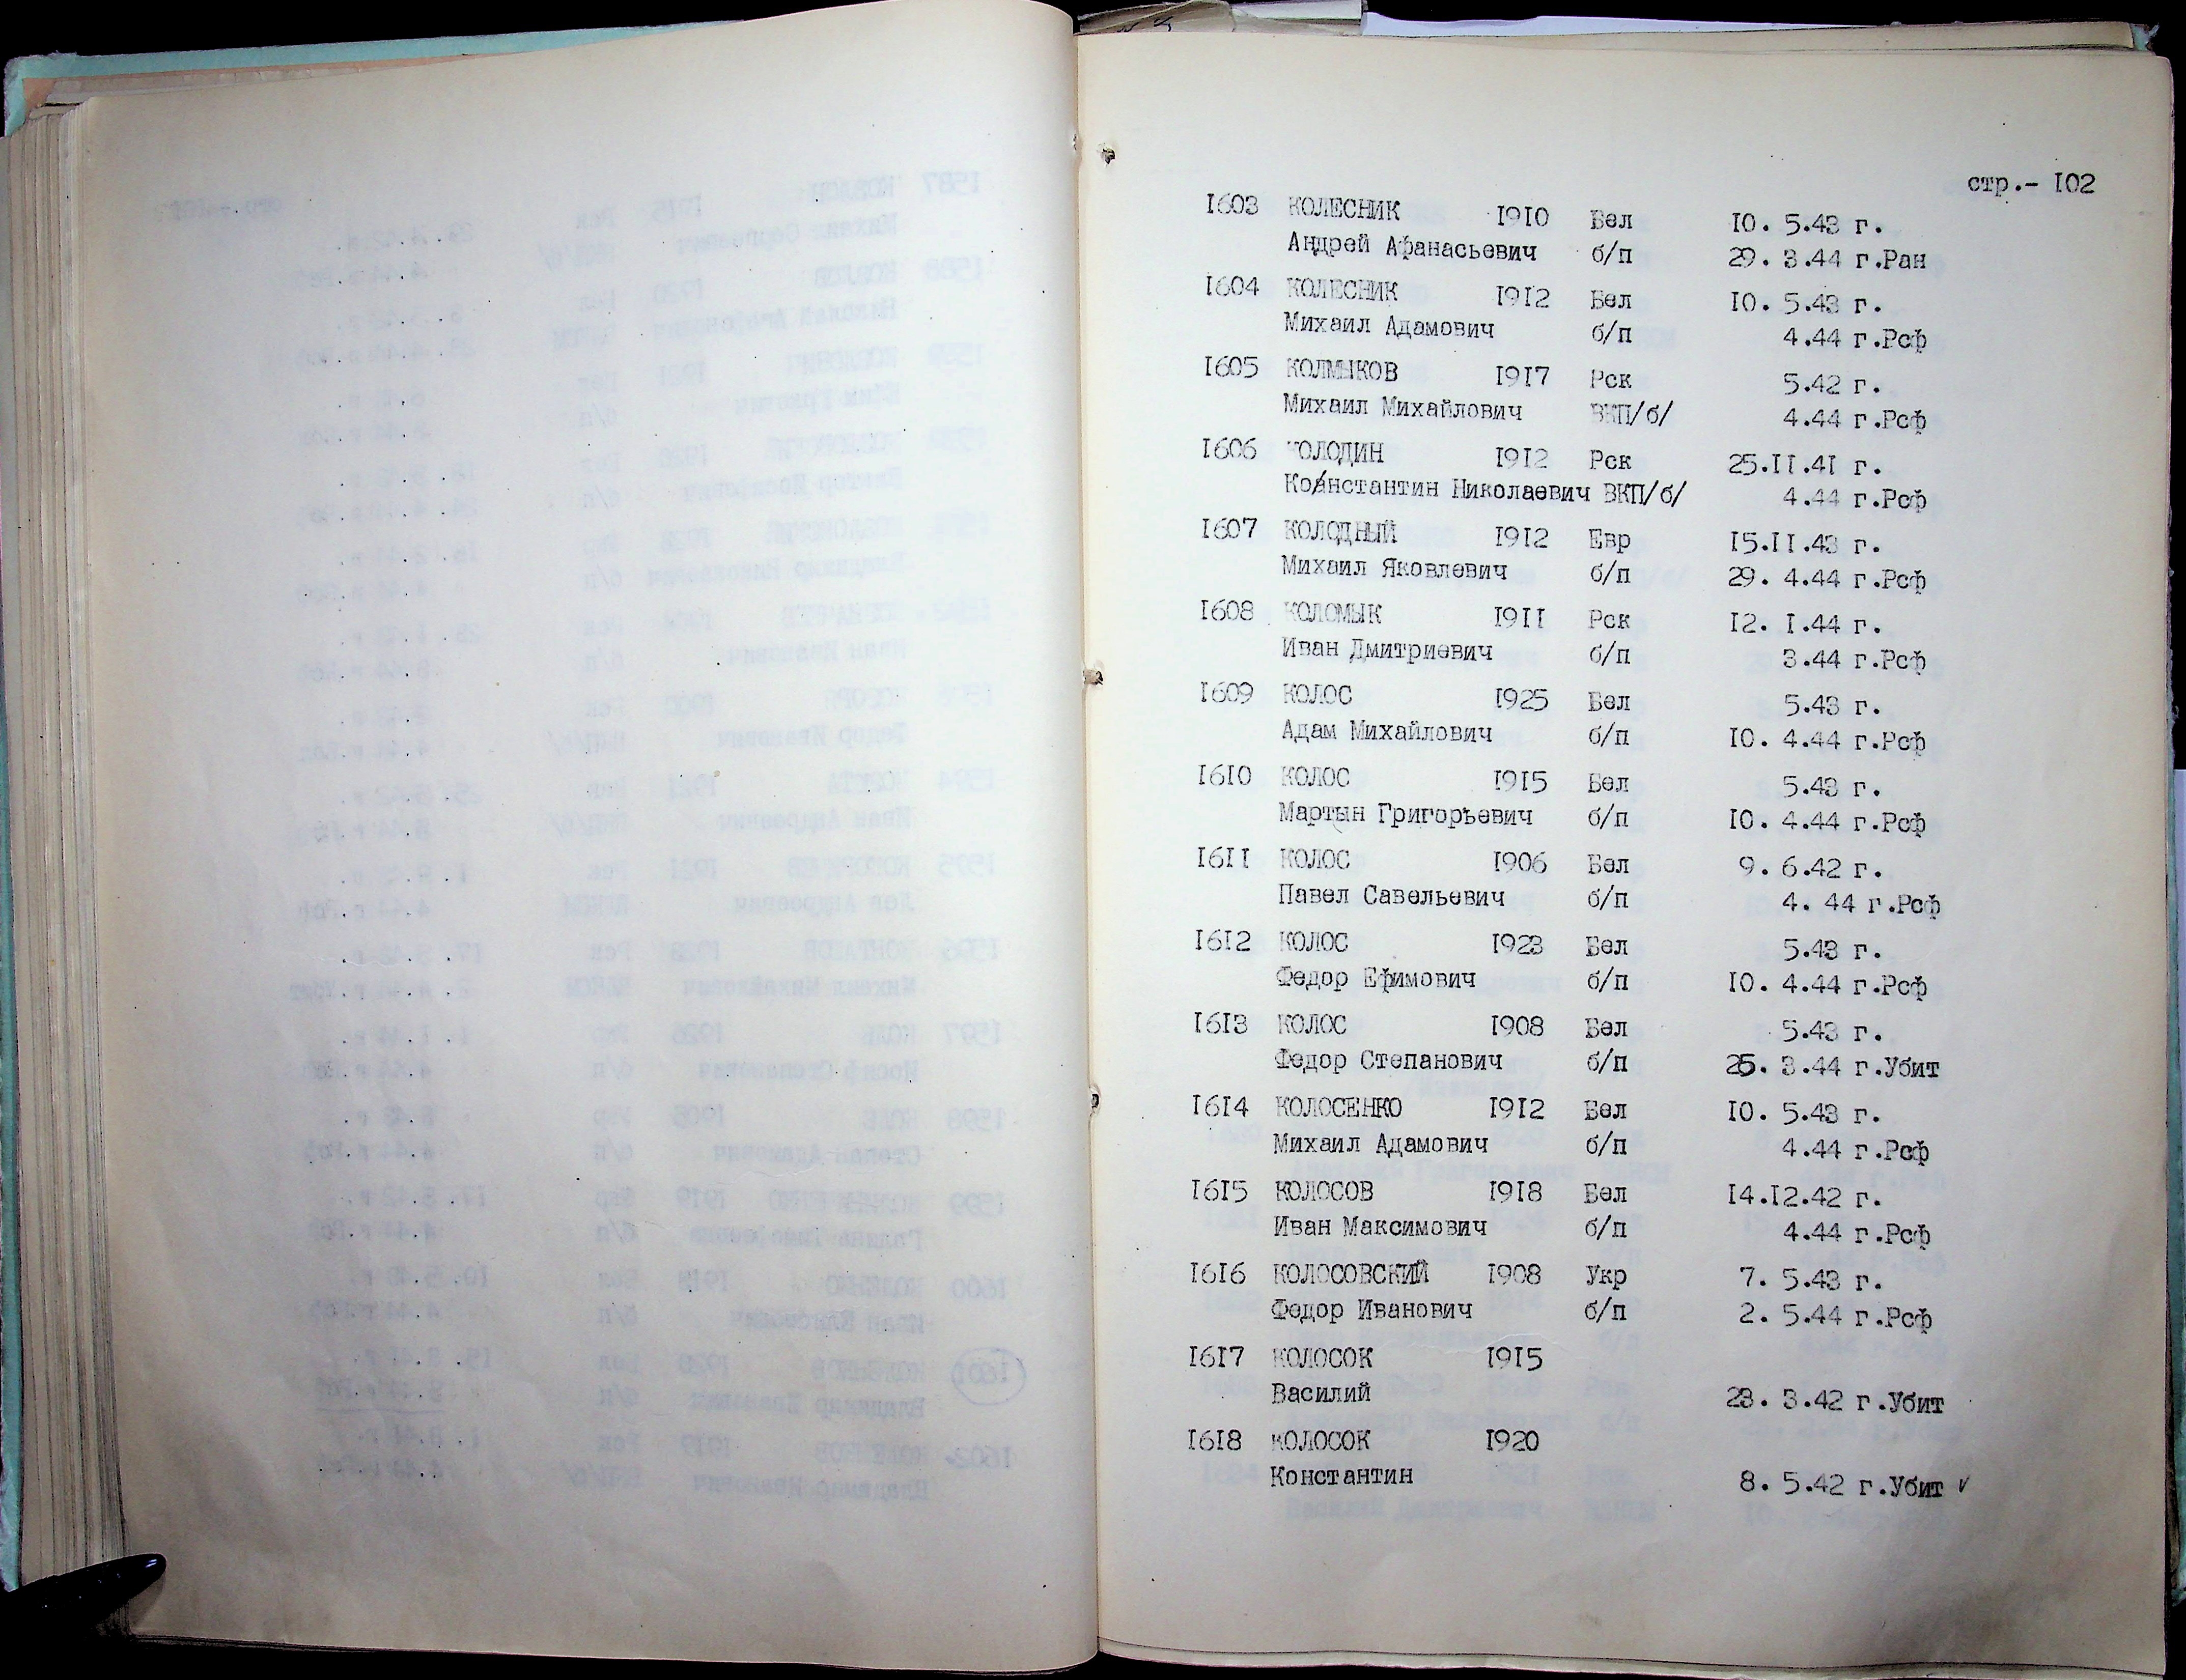 стр.- 102
1603 КОЛЕСНИК 1910 Бел 10. 5.43 г.
Андрей Афанасьевич б/п 29. 3.44 г.Ран
1604 КОЛЕСНИК 1912 Бел 10. 5.43 г.
Михаил Адамович б/п 4.44 г.Рсф
1605 КОЛМЫКОВ 1917 Рск 5.42 г.
Михаил Михайлович ВКП/б/ 4.44 г.Рсф
1606 КОЛОДИН 1912 Рск 25.11.41 г.
Константин Николаевич ВКП/б/ 4.44 г.Рсф
1607 КОЛОДНЫЙ 1912 Евр 15.11.43 г.
Михаил Яковлевич б/п 29. 4.44 г.Рсф
1608 КОЛОМЫК 1911 Рск 12. 1.44 г.
Иван Дмитриевич б/п 3.44 г.Рсф
1609 КОЛОС 1925 Бел 5.43 г.
Адам Михайлович б/п 10. 4.44 г.Рсф
1610 КОЛОС 1915 Бел 5.43 г.
Мартын Григорьевич б/п 10. 4.44 г.Рсф
1611 КОЛОС 1906 Бел 9. 6.42 г.
Павел Савельевич б/п 4. 44 г.Рсф
1612 КОЛОС 1923 Бел 5.43 г.
Федор Ефимович б/п 10. 4.44 г.Рсф
1613 КОЛОС 1908 Бел 5.43 г.
Федор Степанович б/п 25. 3.44 г.Убит
1614 КОЛОСЕНКО 1912 Бел 10. 5.43 г.
Михаил Адамович б/п 4.44 г.Рсф
1615 КОЛОСОВ 1918 Бел 14.12.42 г.
Иван Максимович б/п 4.44 г.Рсф
1616 КОЛОСОВСКИЙ 1908 Укр 7. 5.43 г.
Федор Иванович б/п 2. 5.44 г.Рсф
1617 КОЛОСОК 1915
Василий 23. 3.42 г.Убит
1618 КОЛОСОК 1920
Константин 8. 5.42 г.Убит ✓